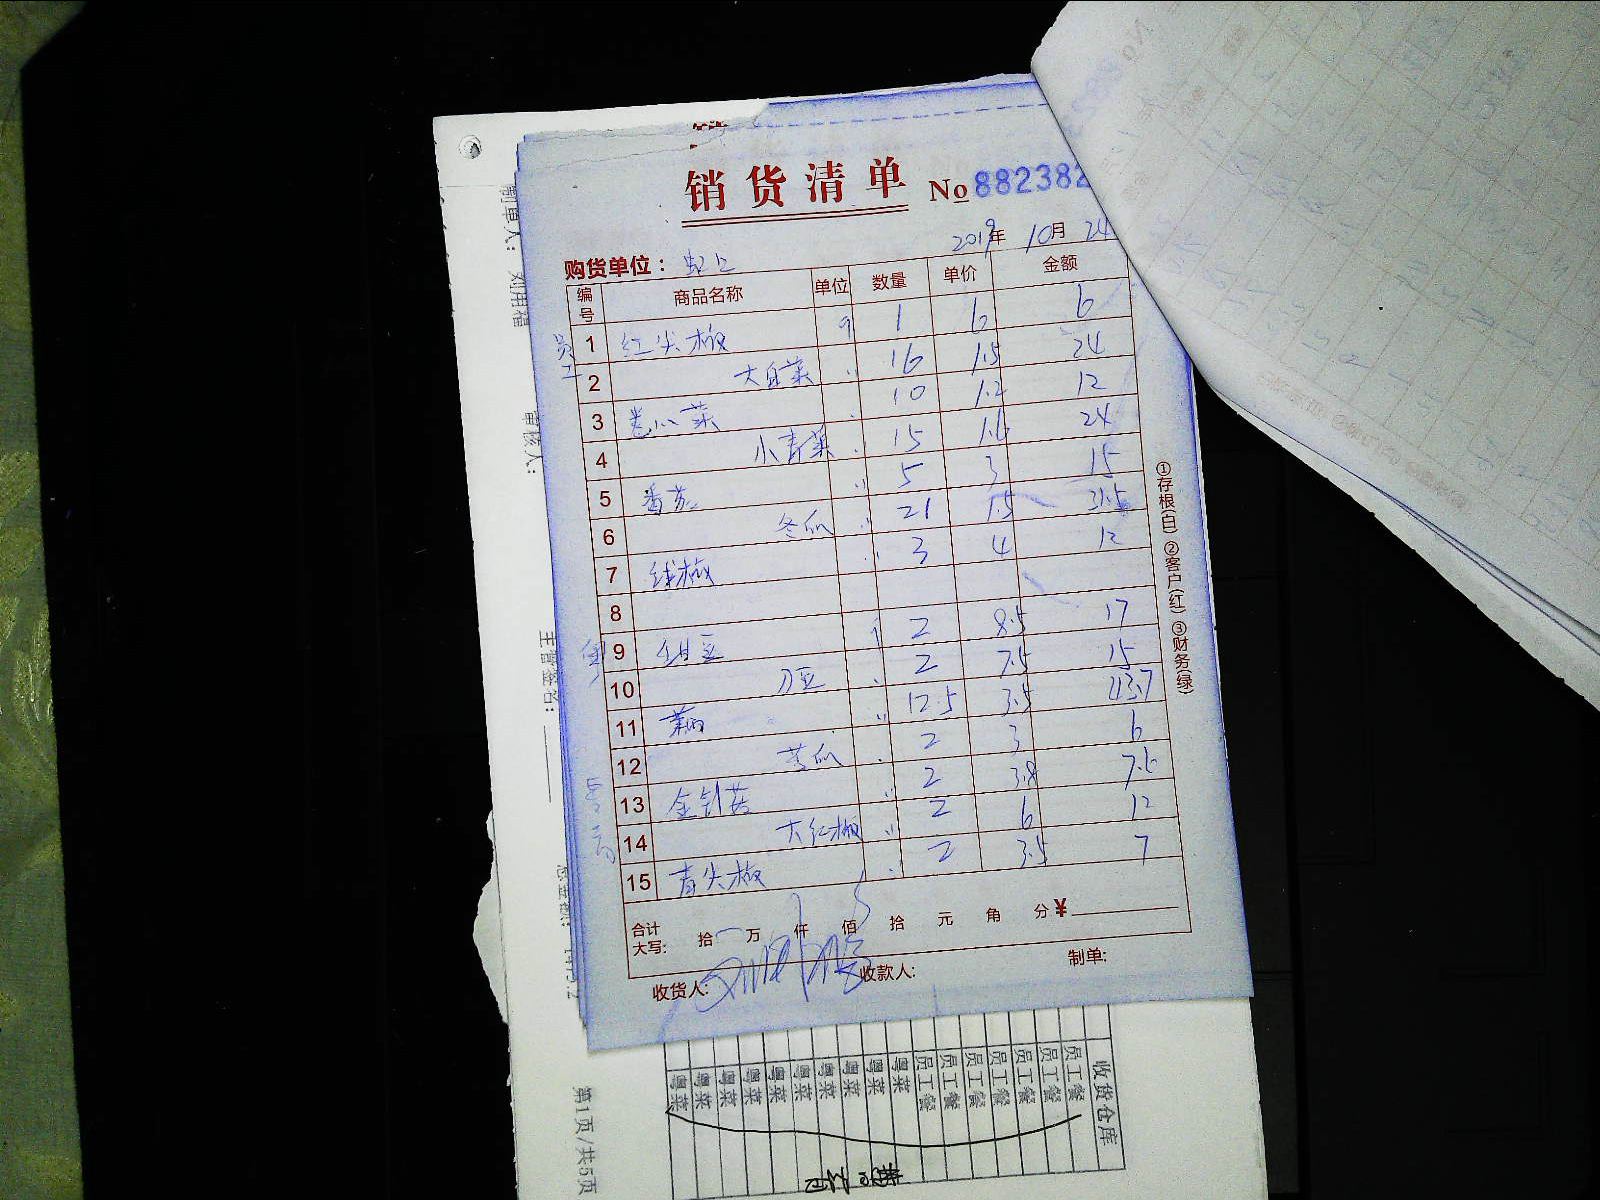 销货清单 No 882382
2019年 10月 24
购货单位：
编号 商品名称 单位 数量 单价 金额
员工
1 红尖椒 斤 1 6 6
2 大白菜 〃 16 1.5 24
3 卷心菜 〃 10 1.2 12
4 小青菜 〃 15 1.6 24
5 番茄 〃 5 3 15
6 冬瓜 〃 21 1.5 31.5
7 线椒 〃 3 4 12
8
9 甜豆 斤 2 8.5 17
10 刀豆 〃 2 7.5 15
11 〃 12.5 3.5
12 苦瓜 〃 2 3 6
13 金针菇 〃 2 3.8 7.6
14 大红椒 〃 2 6 12
15 青尖椒 〃 2 3.5 7
合计
大写： 拾 万 仟 佰 拾 元 角 分 ¥
收货人： 收款人： 制单：
①存根(白) ②客户(红) ③财务(绿)
制单人： 刘用福
审核人：
主管签名：
第1页/共5页
收货仓库
员工餐
员工餐
员工餐
员工餐
员工餐
员工餐
员工餐
粤菜
粤菜
粤菜
粤菜
粤菜
粤菜
粤菜
粤菜
粤菜
粤菜